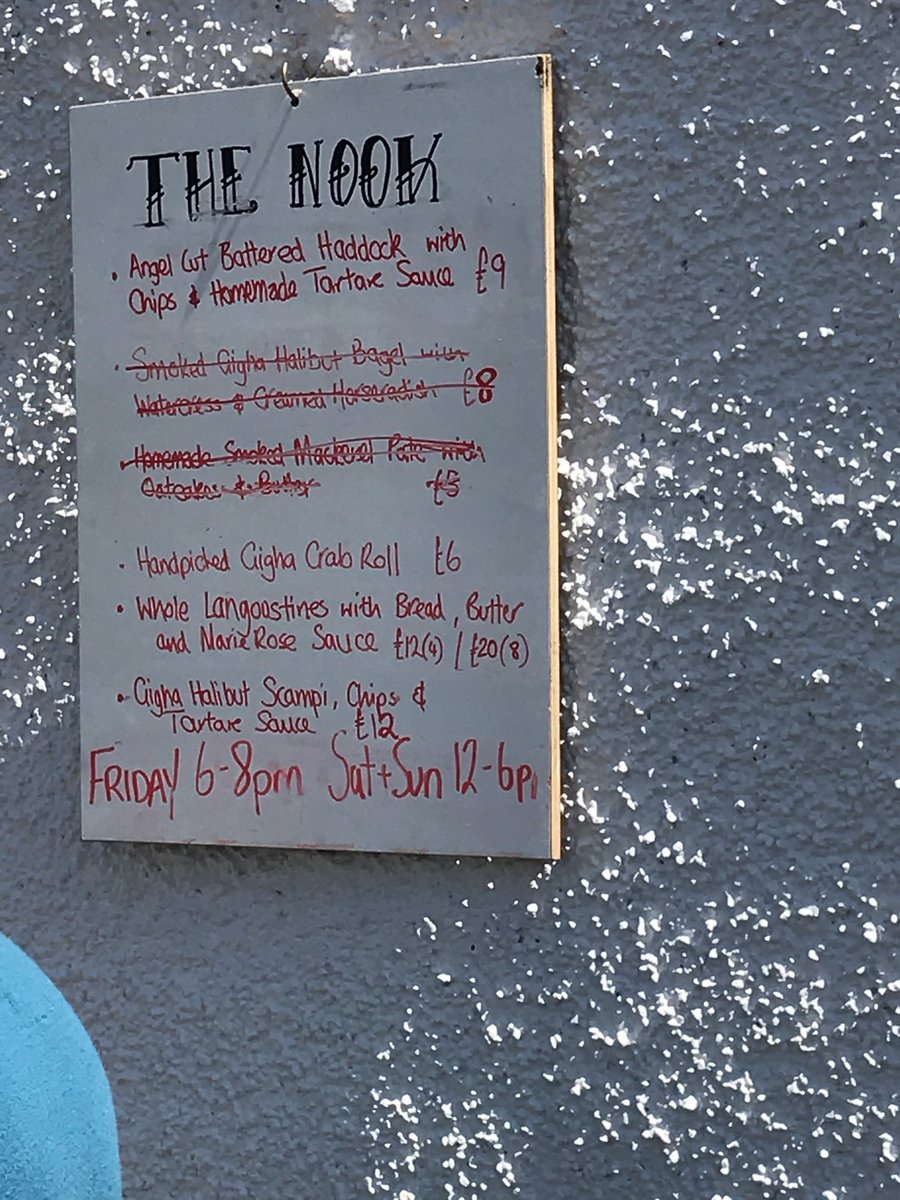 THE NOOK
• Angel Cut Battered Haddock with
Chips & Homemade Tartare Sauce £9
• Smoked Gigha Halibut Bagel with
Watercress & Creamed Horseradish £8
• Homemade Smoked Mackerel Pate with
Oatcakes & Butter £5
• Handpicked Gigha Crab Roll £6
• Whole Langoostines with Bread, Butter
and Marie Rose Sauce £12(4) / £20(8)
• Gigha Halibut Scampi, Chips &
Tartare Sauce £12
FRIDAY 6-8pm Sat+Sun 12-6p